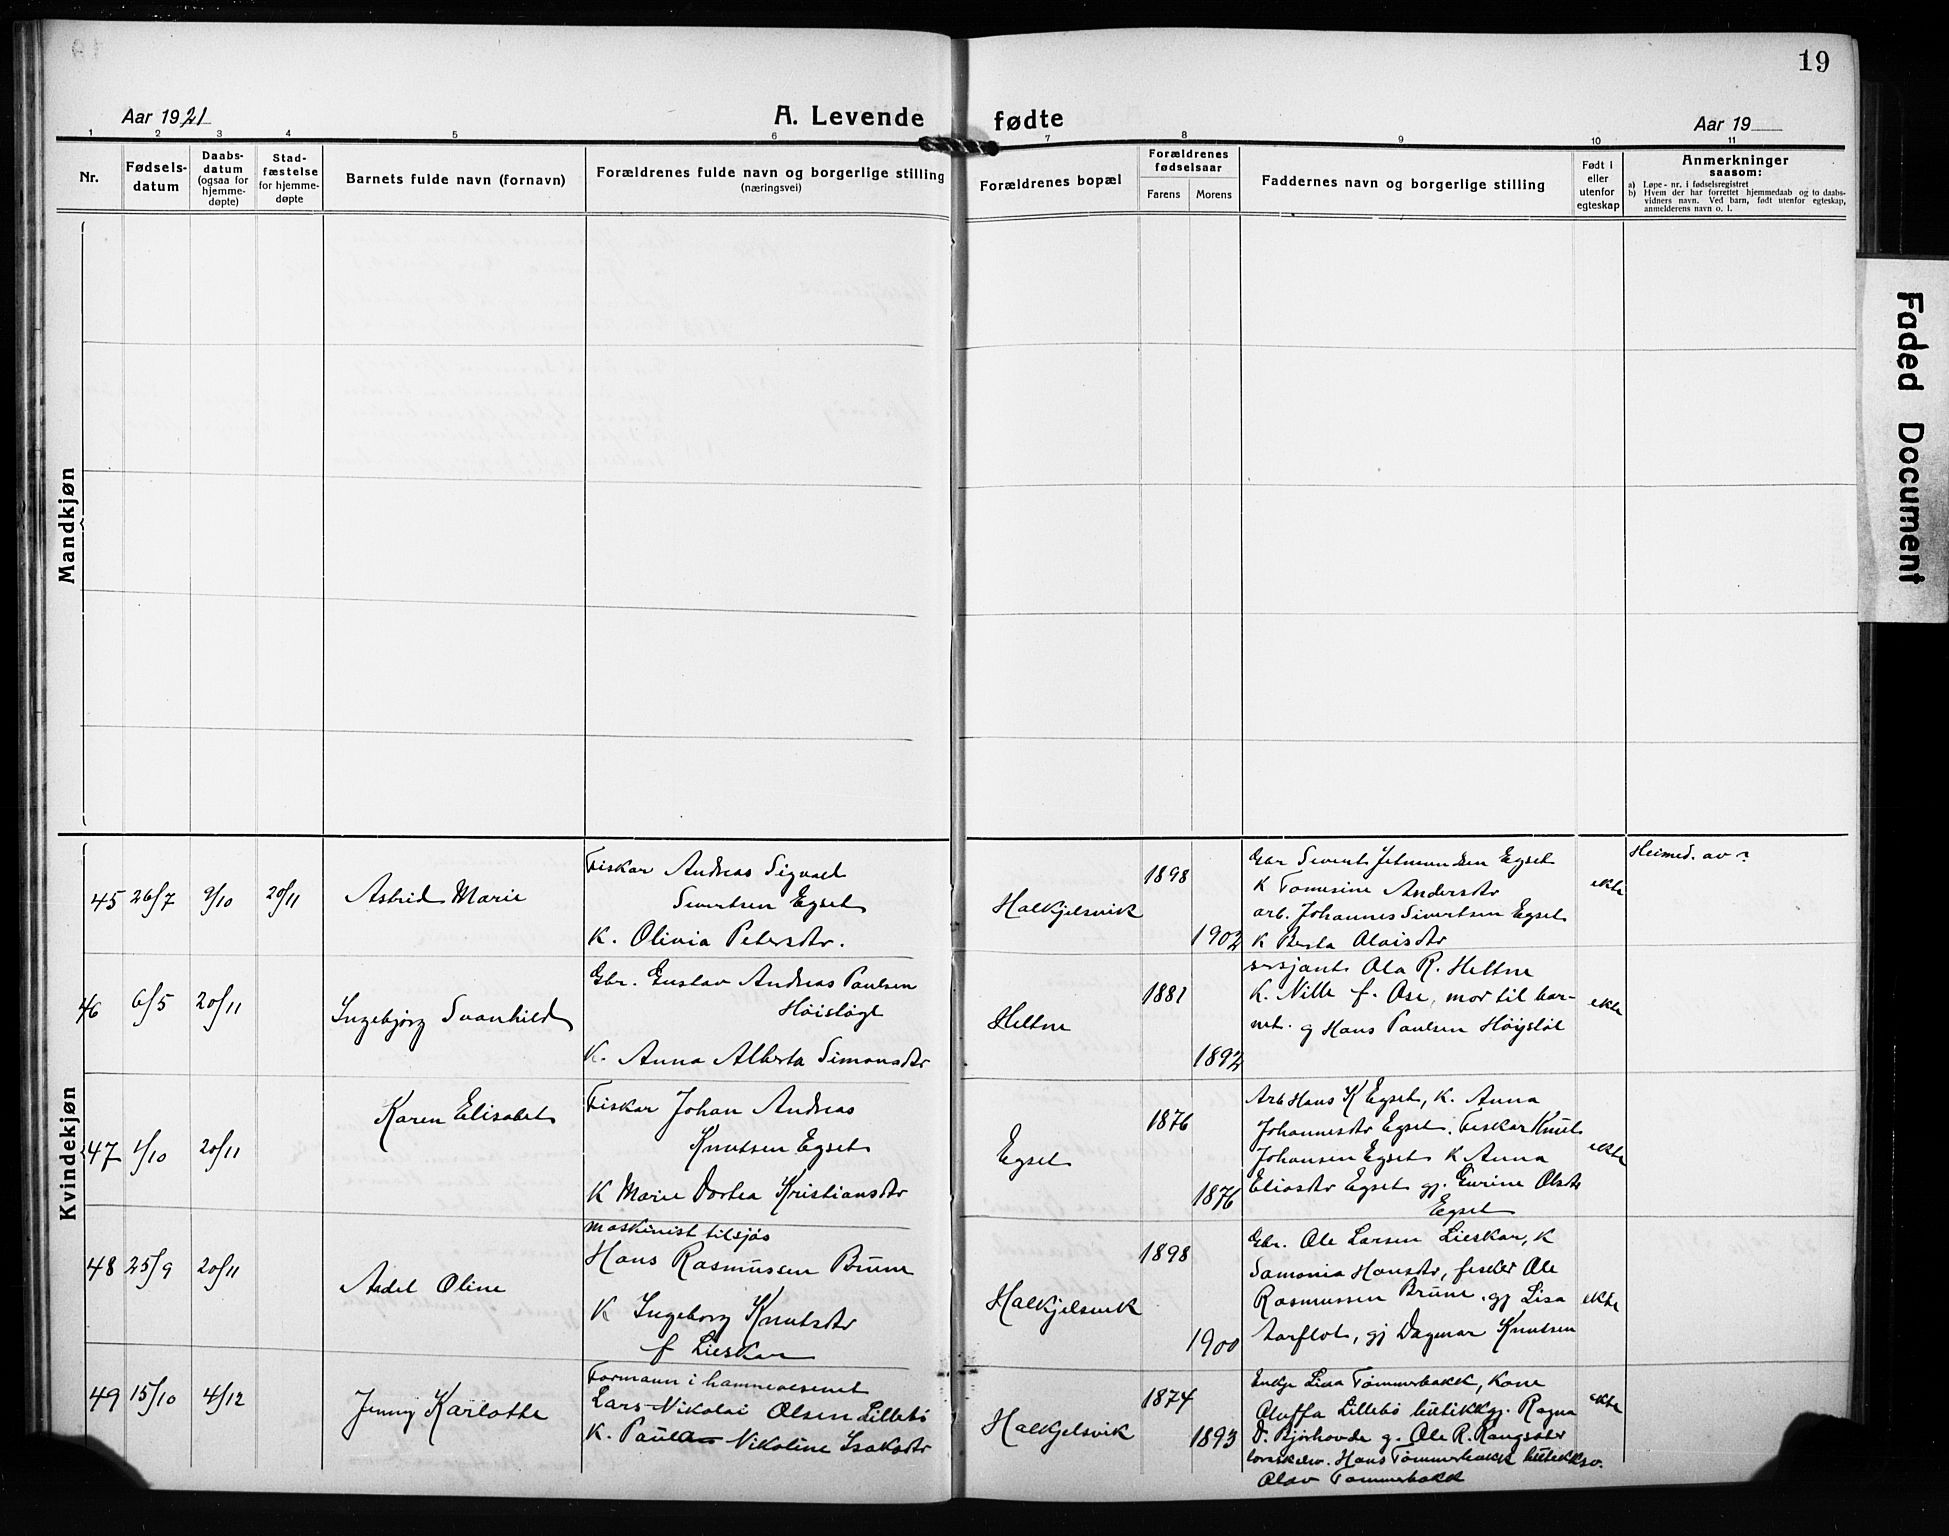 19
Aar 1921
A. Levende fødte
Aar 19
1 2 3 4 5 6 7 8 9 10 11
Nr.
Fødsels-
datum
Daabs-
datum
(ogsaa for
hjemme-
døpte)
Stad-
fæstelse
for hjemme-
døpte
Barnets fulde navn (fornavn)
Forældrenes fulde navn og borgerlige stilling
(næringsvei)
Forældrenes bopæl
Forældrenes
fødselsaar
Farens Morens
Faddernes navn og borgerlige stilling
Født i
eller
utenfor
egteskap
Anmerkninger
saasom:
a) Løpe-nr. i fødselsregistret
b) Hvem der har forrettet hjemmedaab og to daabs-
vidners navn. Ved barn, født utenfor egteskap,
anmelderens navn o. l.
Faded Document
Mandkjøn
Kvindekjøn
45 26/7 9/10 20/11
Astrid Marie
Fiskar Andreas Sigvald
Sivertsen Egset
K. Olivia Petersdtr.
Halkjelsvik
1898
1902
Gbr Sivert Jetmundsen Egset
K Tomasine Andersdtr
arb. Johannes Sivertsen Egset
K Berta Olaisdtr
ekte
Heimed. av ?
46 6/5 20/11
Ingebjørg Svanhild
Gbr. Gustav Andreas Paulsen
Høisløgt
K. Anna Alberta Simonsdtr
Heltne
1881
1892
sersjant Ola R. Heltne
K. Nille f. Ose, mor til bar-
net. g Hans Paulsen Høysløt
ekte
47 1/10 20/11
Karen Elisabet
Fiskar Johan Andreas
Knutsen Egset
K Marie Dortea Kristiansdtr
Egset
1876
1876
Arb Hans K Egset, K. Anna
Johannesdtr Egset. Fiskar Knut
Johansen Egset K Anna
Eliasdtr Egset gj. Gurine Olsdtr
Egset
ekte
48 25/9 20/11
Aadel Oline
Maskinist tilsjøs
Hans Rasmussen Brune
K Ingeborg Knutsdtr
f Lieskar
Halkjelsvik
1898
1900
Gbr. Ole Larsen Lieskar, K
Samonia Hansdtr, fisker Ole
Rasmussen Brune, gj Lisa
Aarflot, gj Dagmar Knutsen
ekte
49 15/10 4/12
Jenny Karlotte
Formann i hamnevesenet
Lars Nikolai Olsen Lillebø
K. Paula Nikoline Isaksdtr
Halkjelsvik
1874
1893
Enkje Lina Tømmerbakk, Kone
Oluffa Lillebø butikkgj. Ragna
D. Bjørhovde g. Ole R. Rangsæter
Hans Tømmerbakk
Olav Tømmerbakk
ekte